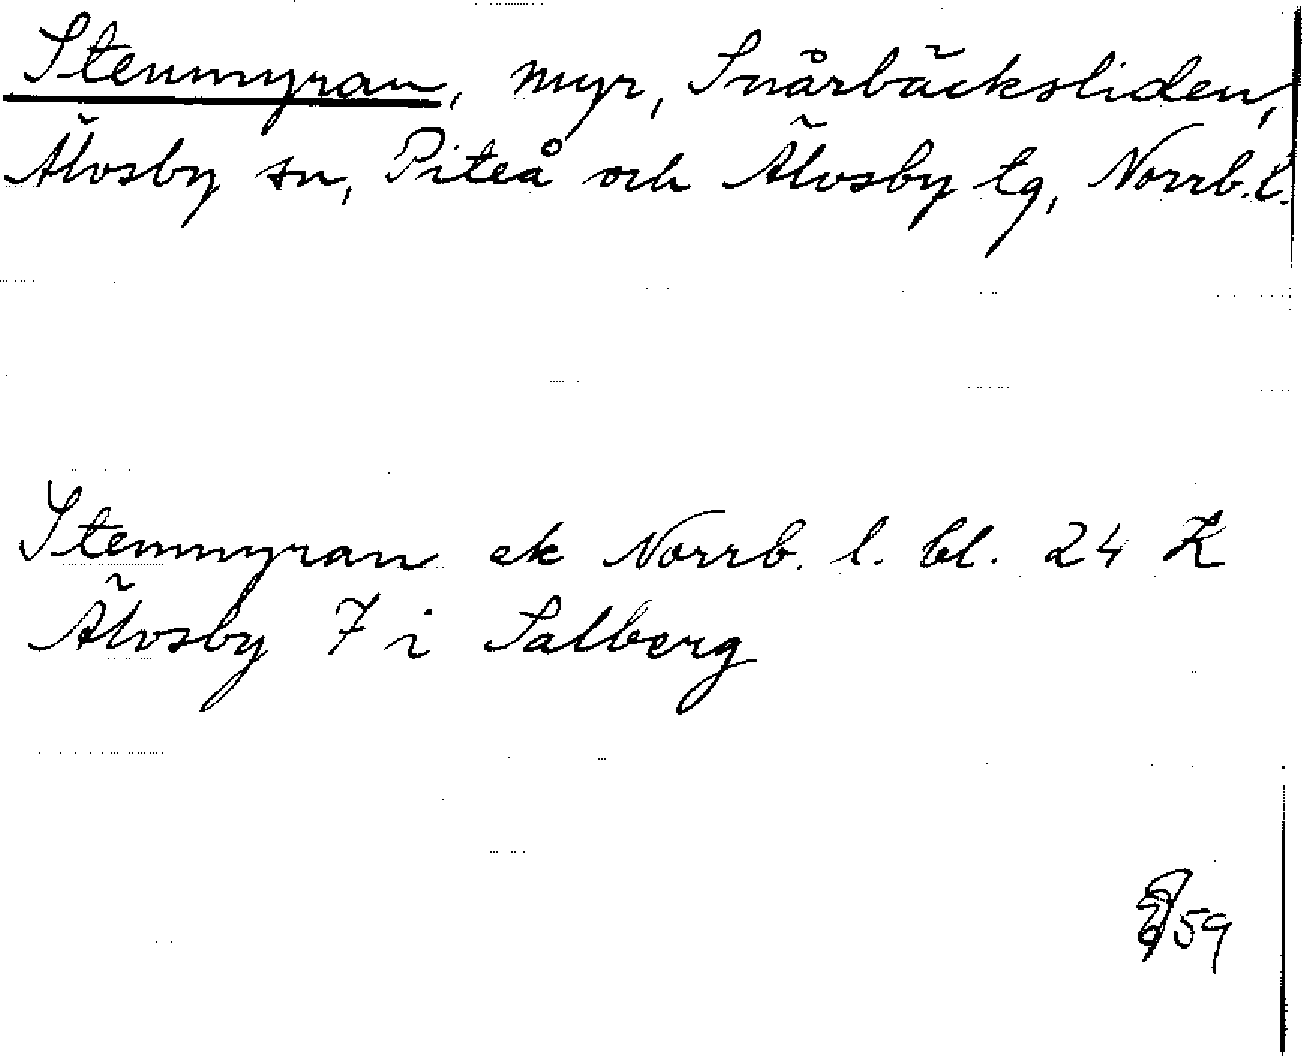 Stenmyran, myr, Snårbäcksliden,
Älvsby sn, Piteå och Älvsby tg, Norrb. l.
Stenmyran ek Norrb. l. bl. 24 K
Älvsby 7 i Salberg
59